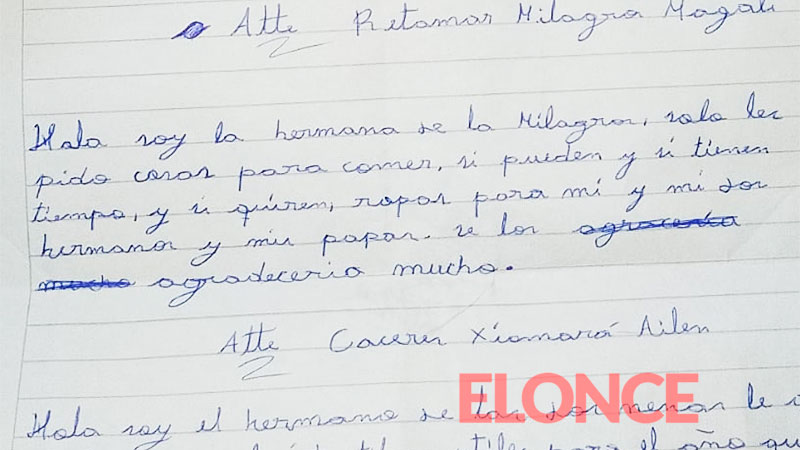 Atte Retamar Milagra Magali
Hola soy la hermana de la Milagros, solo les
pido cosas para comer, si pueden y si tienen
tiempo, y si quiren, ropas para mi y mi dos
hermanos y mis papas. se los agrecenta
mucho agradeceria mucho.
Atte Caceres Xiomará Ailen
ELONCE
Hola soy el hermano de las dos menas le
para el año qu